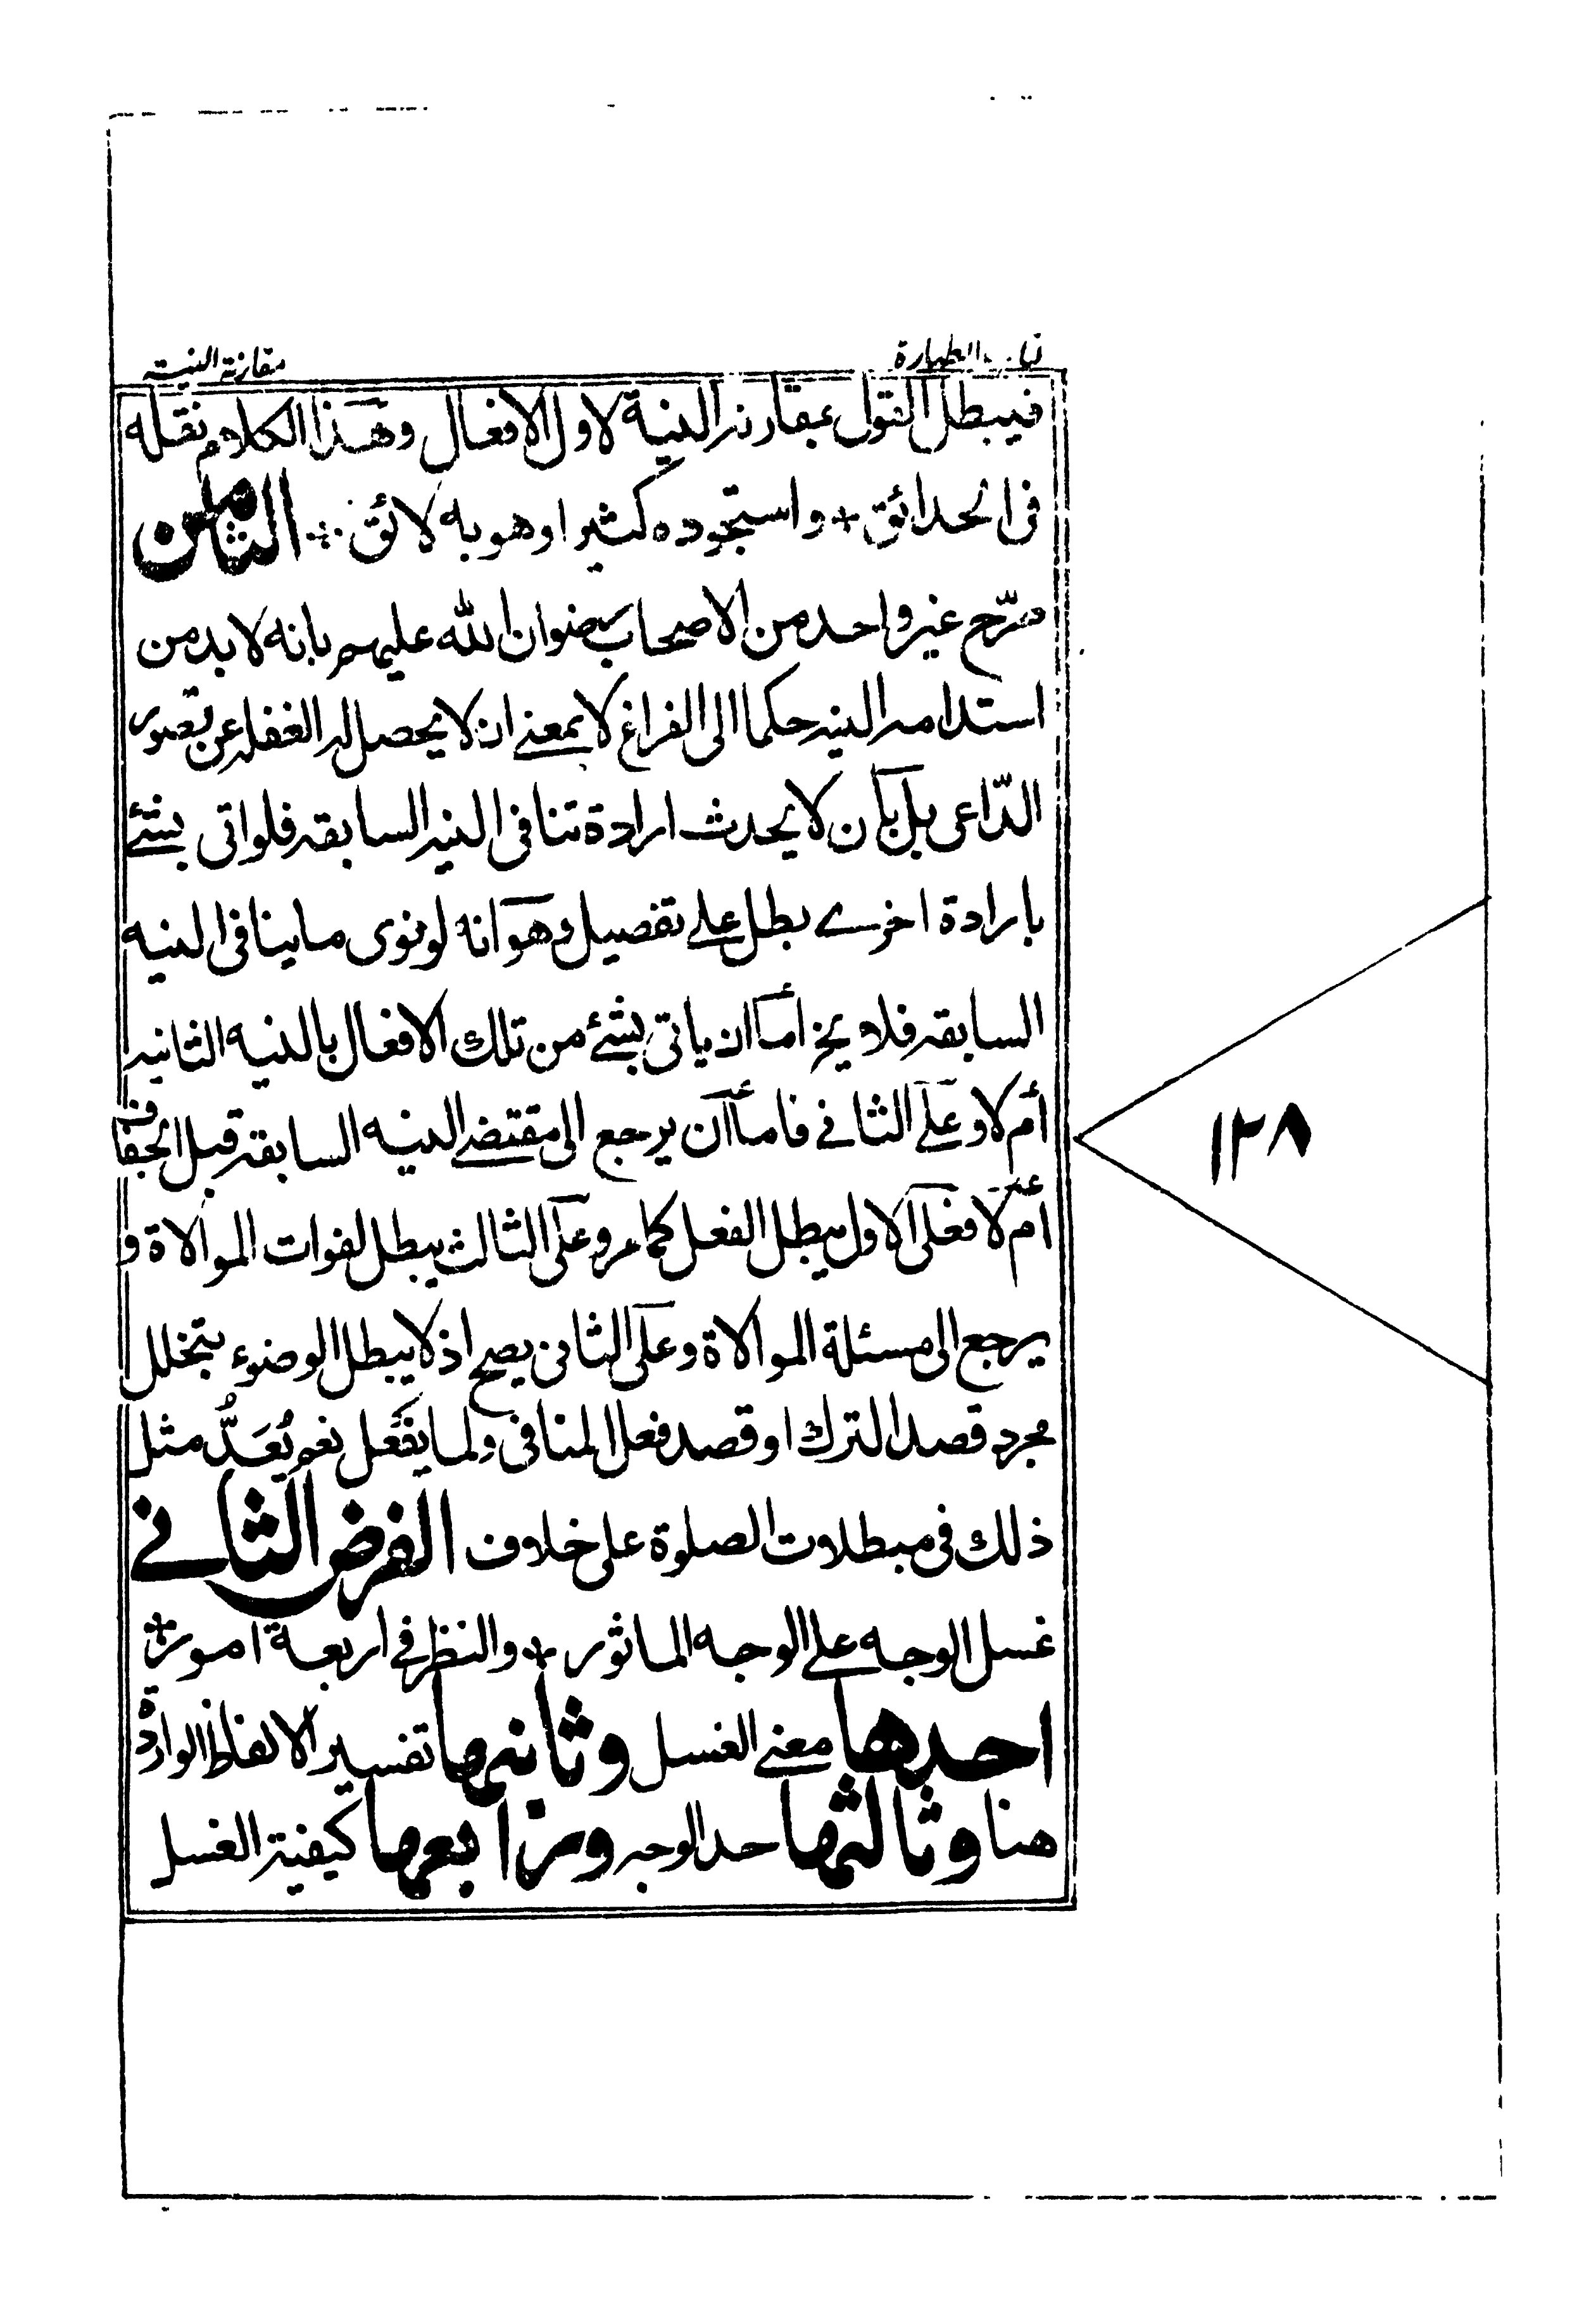 الطهارة
مقارنة النية
فيبطل القول بمقارنة النية لاول الافعال وهذا الكلام نقله
فى الحدائق * واستجوده كثيرا وهو به لائق * الثامن
صرّح غير واحد من الاصحاب رضوان الله عليهم بانه لا بد من
استدامة النية حكما الى الفراغ لا بمعنے ان لا يحصل له الغفلة عن تصور
الدّاعى بل بان لا يحدث ارادة تنافى النية السابقة فلو اتى بشئے
بارادة اخرے بطل علے تفصيل وهو انه لو نوى ما ينافى النيه
السابقة فلا يخ أما ان ياتى بشئے من تلك الافعال بالنيه الثانية
أم لا وعلے الثانے فاما أن يرجع الى مقتضے النيه السابقة قبل الجفاف
أم لا فعلى الاول يبطل الفعل كما مر وعلى الثالث يبطل لفوات الموالاة و
يرجع الى مسئلة الموالاة وعلى الثانى يصح اذ لا يبطل الوضوء بتخلل
مجرد قصد الترك او قصد فعل المنافى ولما يفعل نعم يُعَدُّ مثل
ذلك فى مبطلات الصلوة على خلاف الفرض الثانے
غسل الوجه علے الوجه الماثور * والنظر فے اربعة امور *
احدها معنے الغسل وثانيها تفسير الالفاظ الواردة
هنا وثالثها حد الوجه ورابعها كيفية الغسل
١٣٨